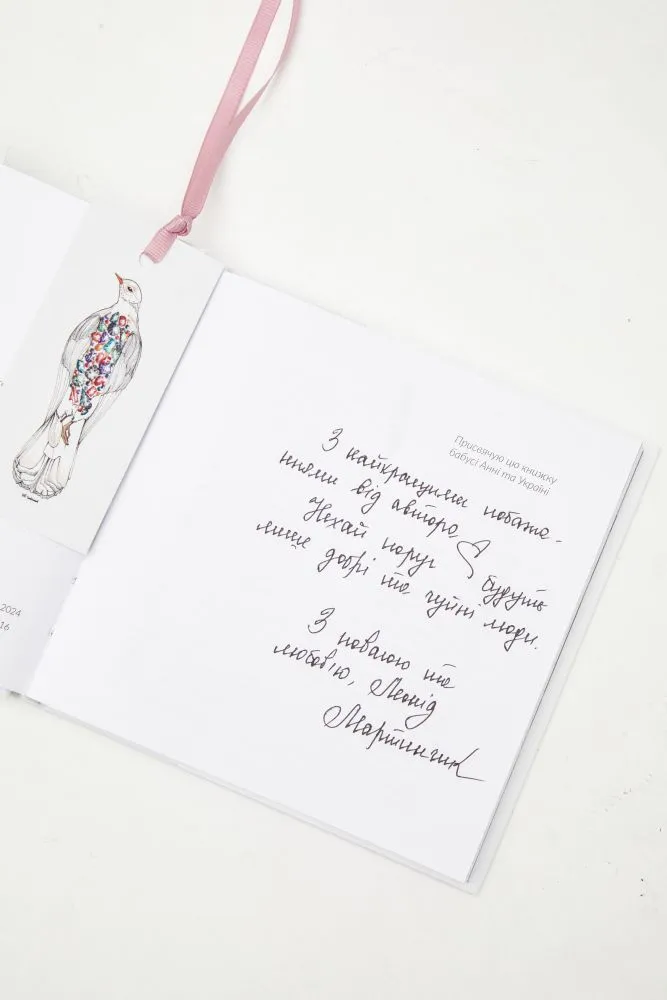 Присвячую цю книжку
бабусі Анні та Україні
З найкращими побажа-
ннями від автора
Нехай поруч будуть
лише добрі та чуйні люди.
З повагою та
любов'ю, Леонід
Мартинчик
2024
16